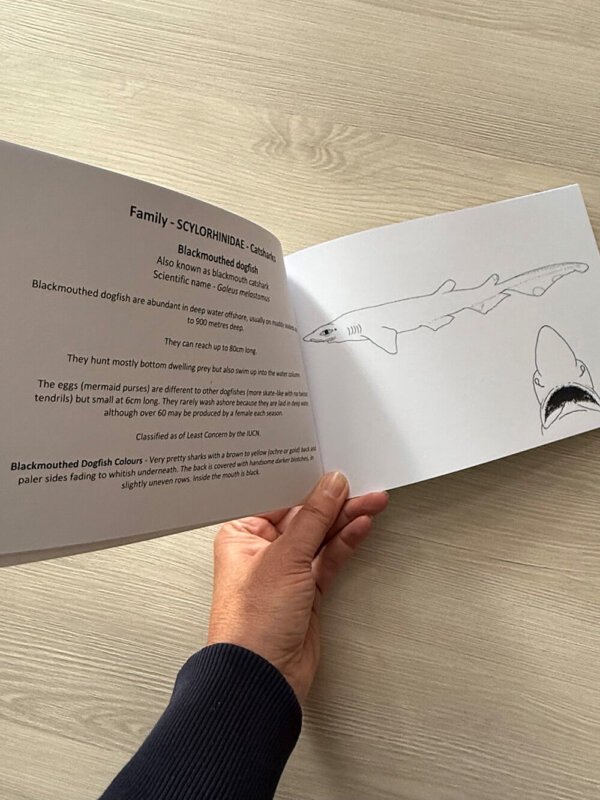 Family - SCYLORHINIDAE - Catsharks
Blackmouthed dogfish
Also known as blackmouth catshark
Scientific name - Galeus melastomus
Blackmouthed dogfish are abundant in deep water offshore, usually on muddy
to 900 metres deep.
They can reach up to 80cm long.
They hunt mostly bottom dwelling prey but also swim up into the water column.
The eggs (mermaid purses) are different to other dogfishes (more skate-like with no
tendrils) but small at 6cm long. They rarely wash ashore because they are laid in deep water,
although over 60 may be produced by a female each season.
Classified as of Least Concern by the IUCN.
Blackmouthed Dogfish Colours - Very pretty sharks with a brown to yellow (ochre or gold) back and
paler sides fading to whitish underneath. The back is covered with handsome darker blotches, in
slightly uneven rows. Inside the mouth is black.